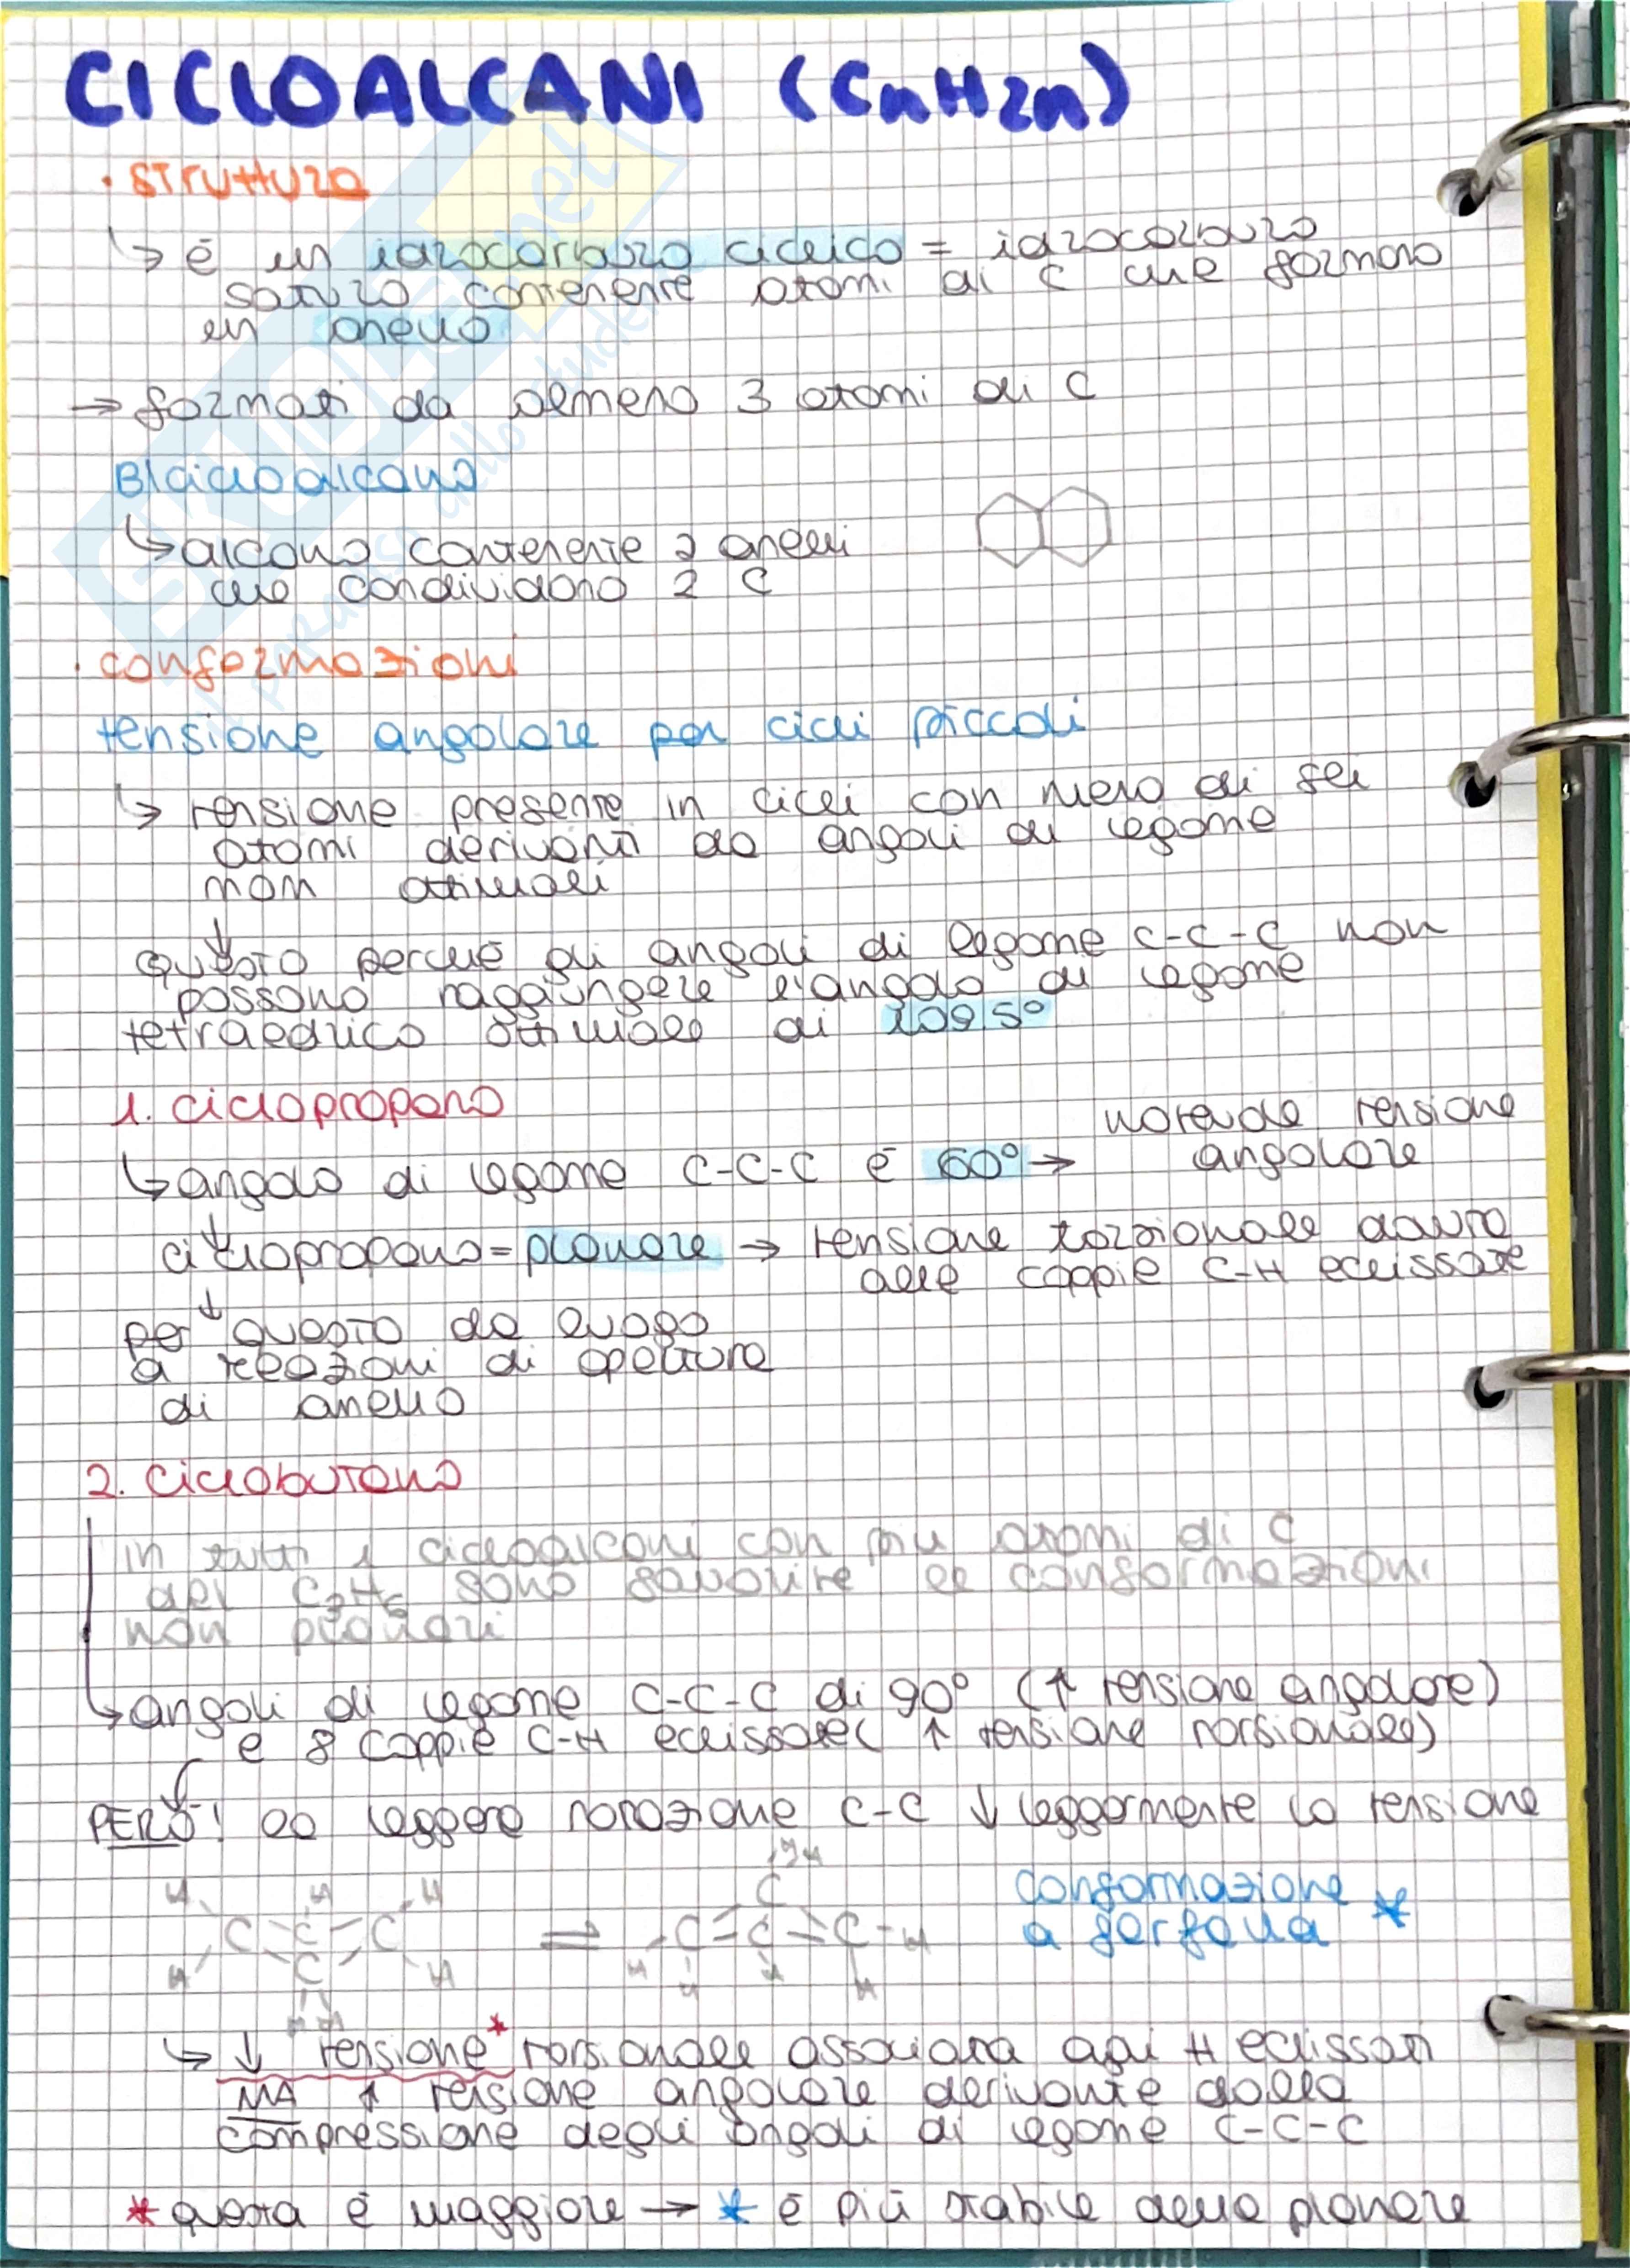 CICLOALCANI (CnH2n)
• struttura
↳ è un idrocarburo ciclico = idrocarburo
saturo contenente atomi di C che formano
un anello
→ formati da almeno 3 atomi di C
BIcicloalcano
↳ alcano contenente 2 anelli
che condividono 2 C
• conformazioni
tensione angolare per cicli piccoli
↳ tensione presente in cicli con meno di sei
atomi derivanti da angoli di legame
non ottimali
↓
questo perché gli angoli di legame C-C-C non
possono raggiungere l'angolo di legame
tetraedrico ottimale di 109.5°
1. ciclopropano
↳ angolo di legame C-C-C è 60° → notevole tensione
angolare
↓
ciclopropano = planare → tensione torsionale dovuta
alle coppie C-H eclissate
↓
per questo da luogo
a reazioni di apertura
di anello
2. ciclobutano
in tutti i cicloalcani con più atomi di C
del C3H6 sono favorite le conformazioni
non planari
↳ angoli di legame C-C-C di 90° (↑ tensione angolare)
e 8 coppie C-H eclissate (↑ tensione torsionale)
PERÒ! la leggera rotazione C-C ↓ leggermente la tensione
H H H
C C C
C
H H
H H
⇌
H
C
C C C H
H H H H
conformazione *
a farfalla
↳ ↓ tensione* torsionale associata agli H eclissati
MA ↑ tensione angolare derivante dalla
compressione degli angoli di legame C-C-C
* questa è maggiore → * è più stabile della planare
SKUOLA.net
il paradiso dello studente